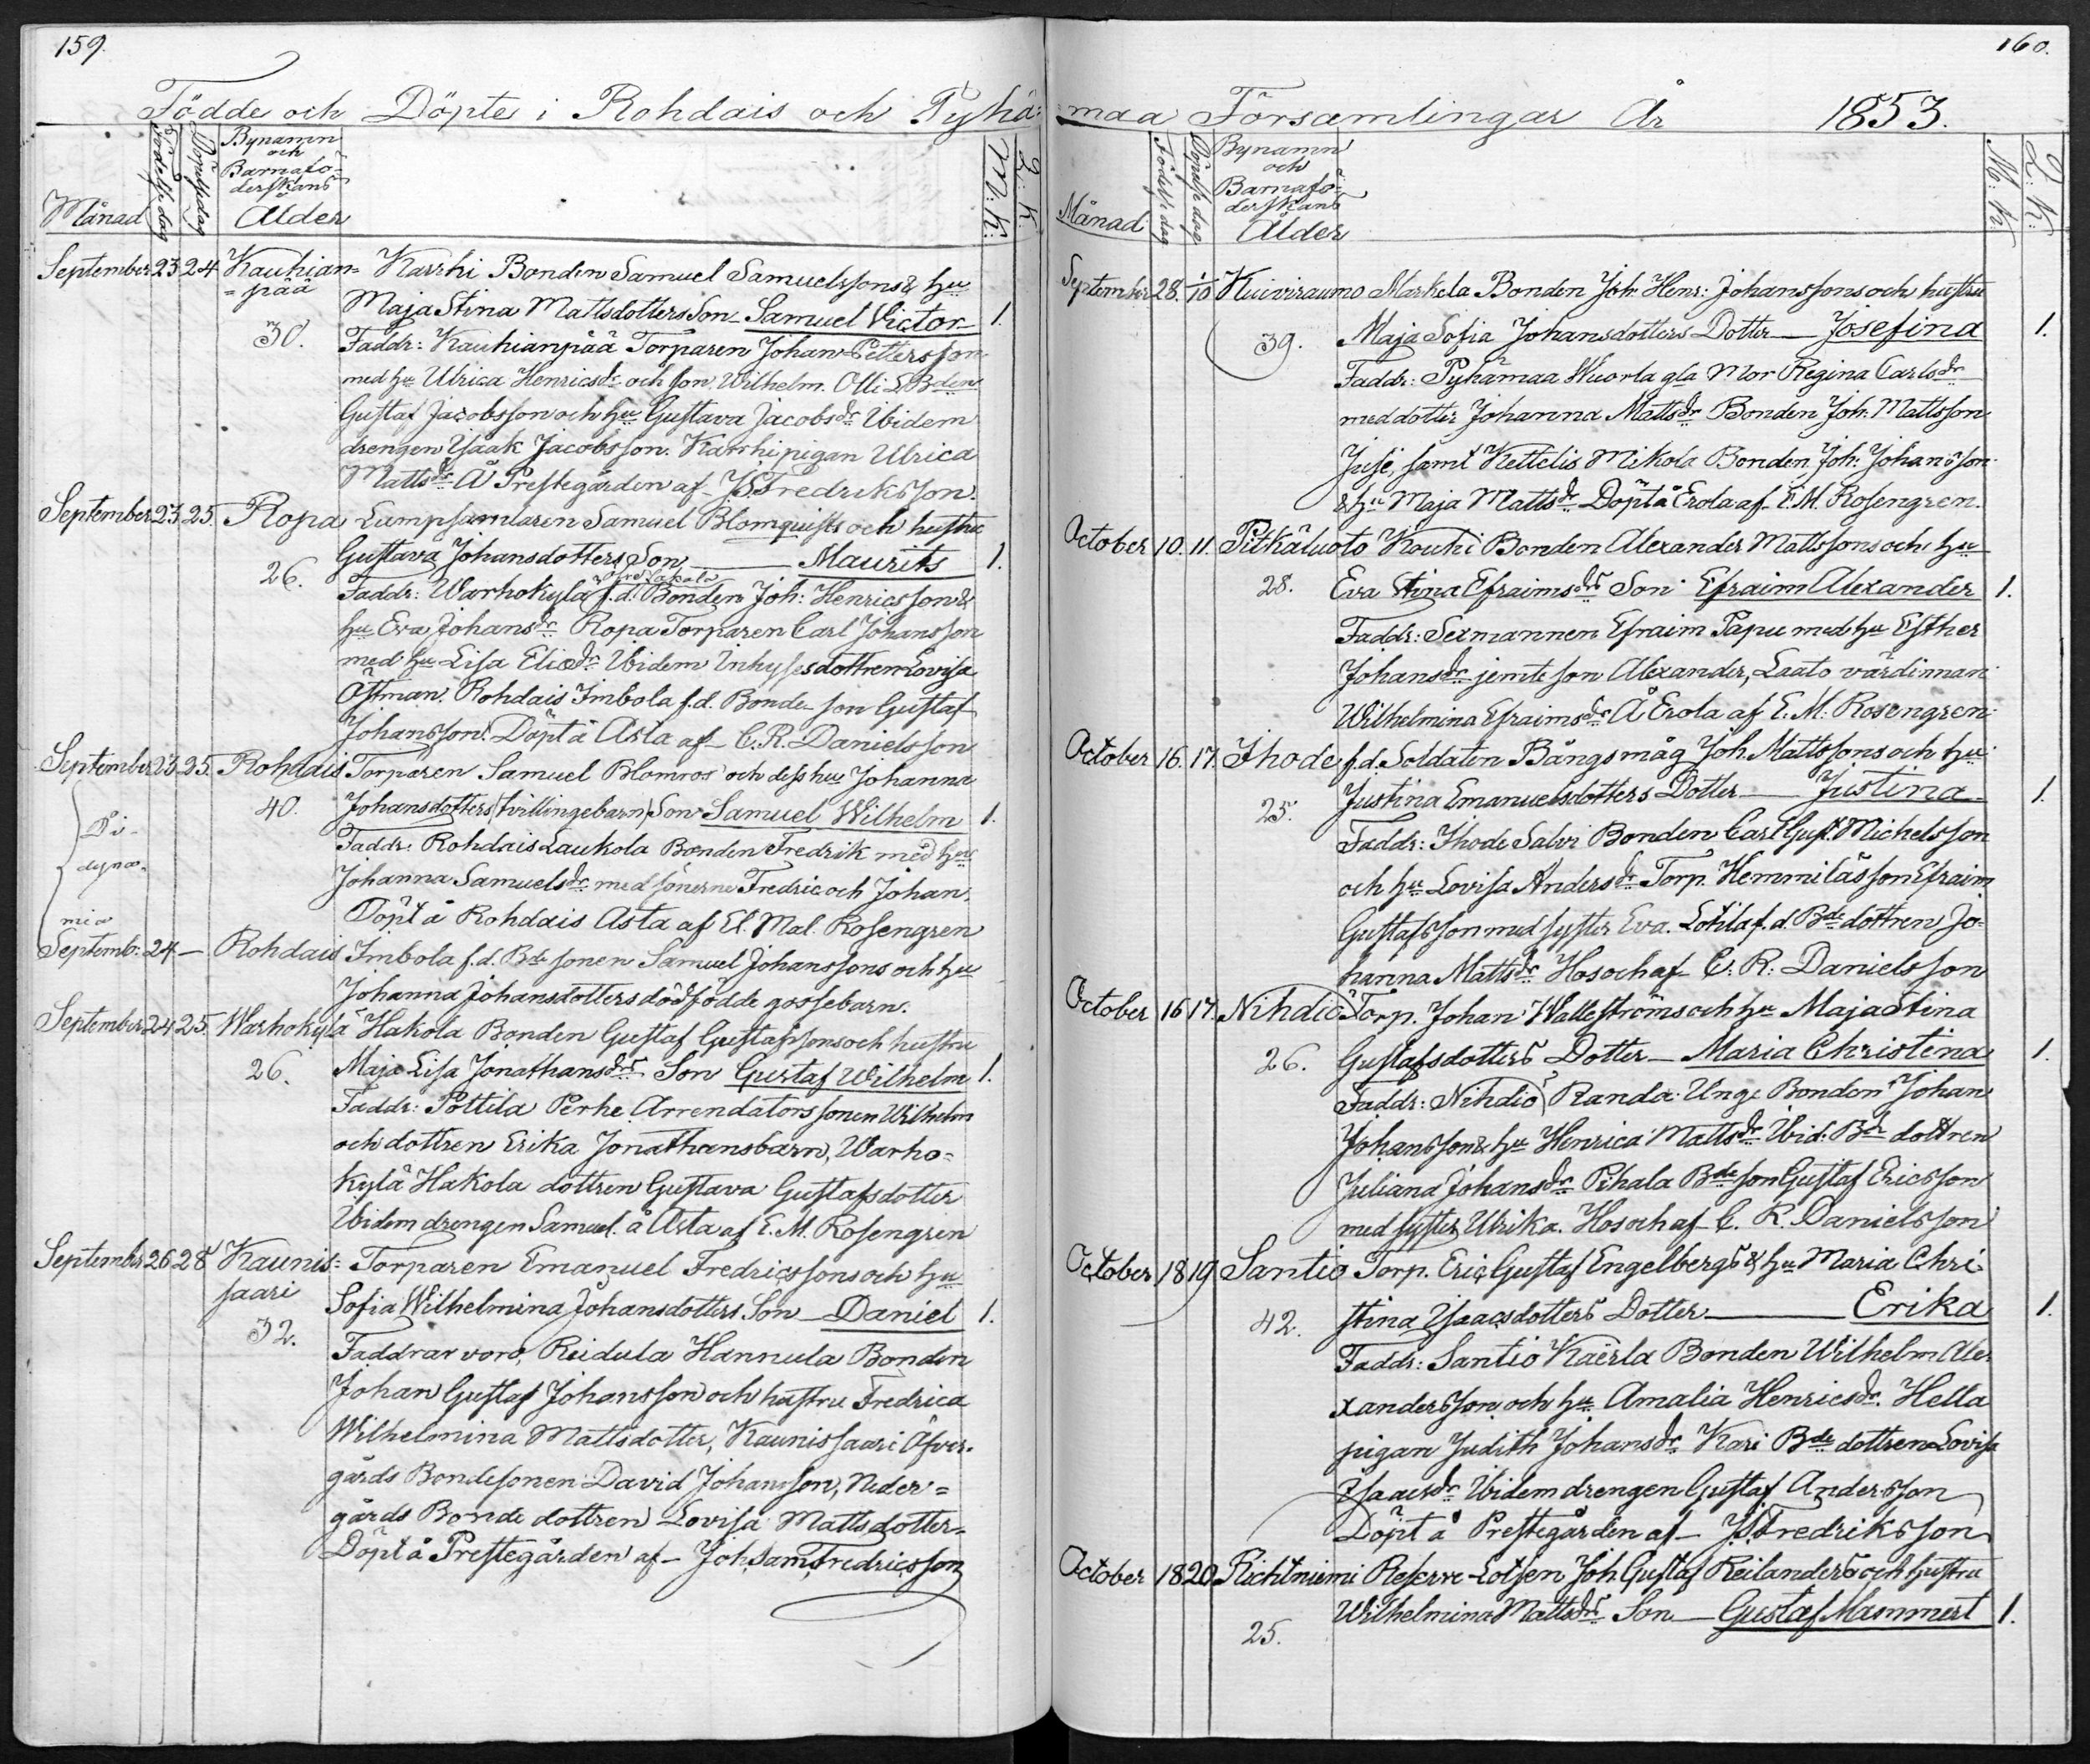 159.
Födde och Döpte i Rohdais och Pyhä=
Månad
Födelse dag
Döpelsedag
Bynamn
och
Barnafö=
derskans
Ålder
M: K:
Q: K:
September 23 24 Kauhian= Karrhi Bonden Samuel Samuelssons & hu
=pää Maja Stina Mattsdotters Son Samuel Victor 1.
30. Faddr: Kauhianpää Torparen Johan Pettersson
med hu Ulrica Henricsdr och son Wilhelm. Olli Bden
Gustaf Jacobsson och hu Gustava Jacobsdr Ibidem
drengen Isaak Jacobsson. Karrhi pigan Ulrica
Mattsdr Å Prestegården af J S Fredriksson.
September 23 25. Ropa Lumpsamlaren Samuel Blomquists och hustru
Gustava Johansdotters Son Maurits 1.
26. Faddr: Warhokylä f.d. Bonden Joh: Henricsson &
hu Eva Johansdr Ropa Torparen Carl Johansson
med hu Lisa Eliædr Ibidem Inhysesdottren Lovisa
Östman. Rohdais Imbola f.d. Bonde son Gustaf
Johansson. Döpt å Asta af C. R. Danielsson
September 23 25. Rohdais Torparen Samuel Blomros och dess hu Johanna
40. Johansdotters (tvillingebarn) Son Samuel Wilhelm 1.
Di-
dyna-
mia
Faddr. Rohdais Laukola Bonden Fredrik med hu
Johanna Samuelsdr med sönerne Fredric och Johan.
Döpt å Rohdais Asta af El. Mal. Rosengren
Septemb: 24 — Rohdais Imbola f.d. Bde sonen Samuel Johanssons och hu
Johanna Johansdotters dödfödde gossebarn.
September 24 25. Warhokylä Hakola Bonden Gustaf Gustafssons och hustru
26. Maja Lisa Jonathansdrs Son Gustaf Wilhelm 1.
Faddr: Pottila Perhe Arrendators sonen Wilhelm
och dottren Erika Jonathansbarn, Warho=
kylä Hakola dottren Gustava Gustafsdotter
Ibidem drengen Samuel. å Asta af E. M. Rosengren
Septembr 26 28 Kaunis= Torparen Emanuel Fredricssons och hu
saari Sofia Wilhelmina Johansdotters Son Daniel 1.
32. Faddrar voro, Reidula Hannula Bonden
Johan Gustaf Johansson och hustru Fredrica
Wilhelmina Mattsdotter, Kaunissaari Öfver-
gårds Bondesonen David Johansson, Neder=
gårds Bonde dottren Lovisa Mattsdotter=
Döpt å Prestegården af Joh Sam Fredricsson
160.
maa Församlingar År 1853.
Månad
Födelse dag
Döpelse dag
Bynamn
och
Barnafö=
derskans
Ålder
M: K:
Q: K:
September 28. 1/10 Kuivirauma Markela Bonden Joh. Henr: Johanssons och hustru
39. Maja Sofia Johansdotters Dotter Josefina 1.
Faddr: Pyhämaa Wuorla gla Mor Regina Carlsdr
med dotter Johanna Mattsdr Bonden Joh: Mattsson
Juse, samt Kettelis Mikola Bonden Joh: Johansson
& hu Maja Mattsdr Döpt å Erola af E. M. Rosengren.
October 10. 11. Pitkäluoto Kouhi Bonden Alexander Mattssons och hu
28. Eva Stina Efraimsdrs Son Efraim Alexander 1.
Faddr: Sexmannen Efraim Papu med hu Esther
Johansdr jemte son Alexander, Laato värdinnan
Wilhelmina Efraimsdr Å Erola af E. M. Rosengren
October 16. 17. Ihode f.d. Soldaten Bångs måg Joh. Mattssons och hu
25. Justina Emanuelsdotters Dotter Justina 1.
Faddr: Ihode Salvi Bonden Carl Gust. Michelsson
och hu Lovisa Andersdr Torp. Hemmiläs son Efraim
Gustafsson med syster Eva. Lohila f.d. Bde dottren Jo=
hanna Mattsdr Hos och af C. R. Danielsson
October 16 17. Nihdiö Torp. Johan Wallströms och hu Maja Stina
26. Gustafsdotters Dotter Maria Christina 1.
Faddr: Nihdiö Randa Unge Bonden Johan
Johansson & hu Henrica Mattsdr Ibid: Bde dottren
Juliana Johansdr Pihala Bde son Gustaf Ericsson
med syster Ulrika. Hos och af C. R. Danielsson
October 18 19 Santio Torp. Eric Gustaf Engelbergs & hu Maria Chri-
42. stina Isaacsdotters Dotter Erika 1.
Faddr: Santio Kaerla Bonden Wilhelm Ale-
xandersson och hu Amalia Henricsdr. Hella
pigan Judith Johansdr Kari Bde dottren Lovisa
Isaacsdr Ibidem drengen Gustaf Andersson
Döpt å Prestegården af J S Fredriksson
October 18 20 Richtniemi Reserve-Lotsen Joh Gustaf Reilanders och hustru
25. Wilhelmina Mattsdrs Son Gustaf Mammert 1.